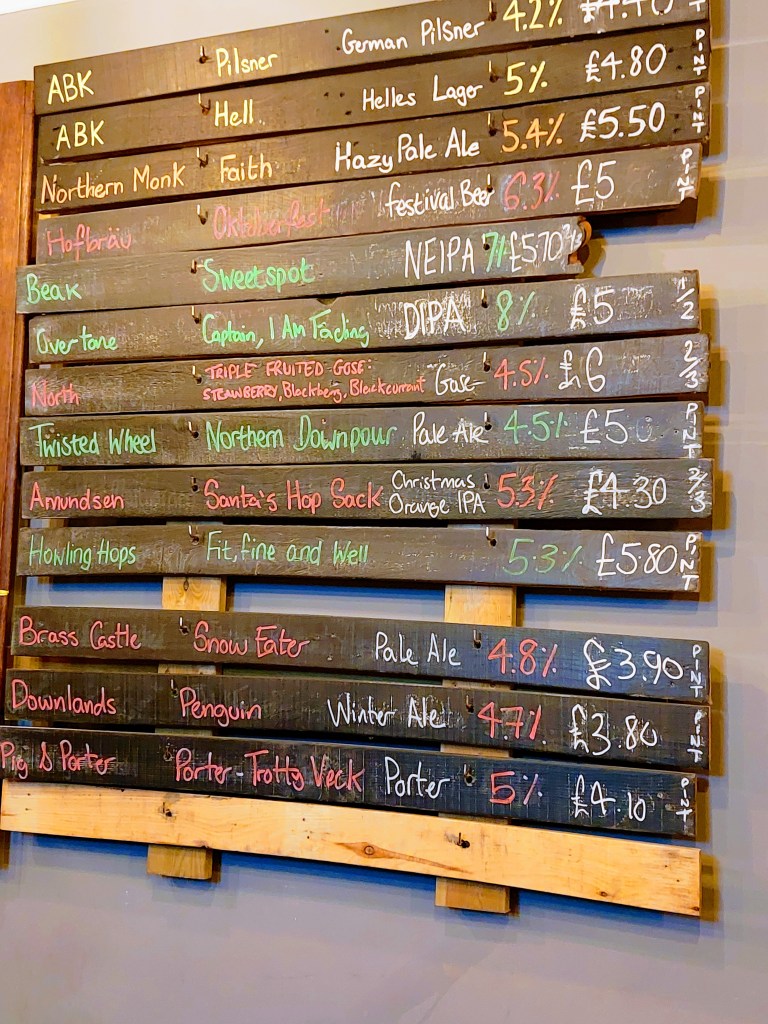 ABK Pilsner German Pilsner 4.2% £4.40 PINT
ABK Hell Helles Lager 5% £4.80 PINT
Northern Monk Faith Hazy Pale Ale 5.4% £5.50 PINT
Hofbräu Oktoberfest festival Beer 6.3% £5 PINT
Beak Sweetspot NEIPA 7% £5.70 2/3
Overtone Captain, I Am Fading DIPA 8% £5 1/2
North TRIPLE FRUITED GOSE:
STRAWBERRY, Blackberry, Blackcurrant Gose 4.5% £6 2/3
Twisted Wheel Northern Downpour Pale Ale 4.5% £5 PINT
Amundsen Santa's Hop Sack Christmas
Orange IPA 5.3% £4.30 2/3
Howling Hops Fit, fine and Well 5.3% £5.80 PINT
Brass Castle Snow Eater Pale Ale 4.8% £3.90 PINT
Downlands Penguin Winter Ale 4.7% £3.80 PINT
Pig & Porter Porter-Trotty Veck Porter 5% £4.10 PINT